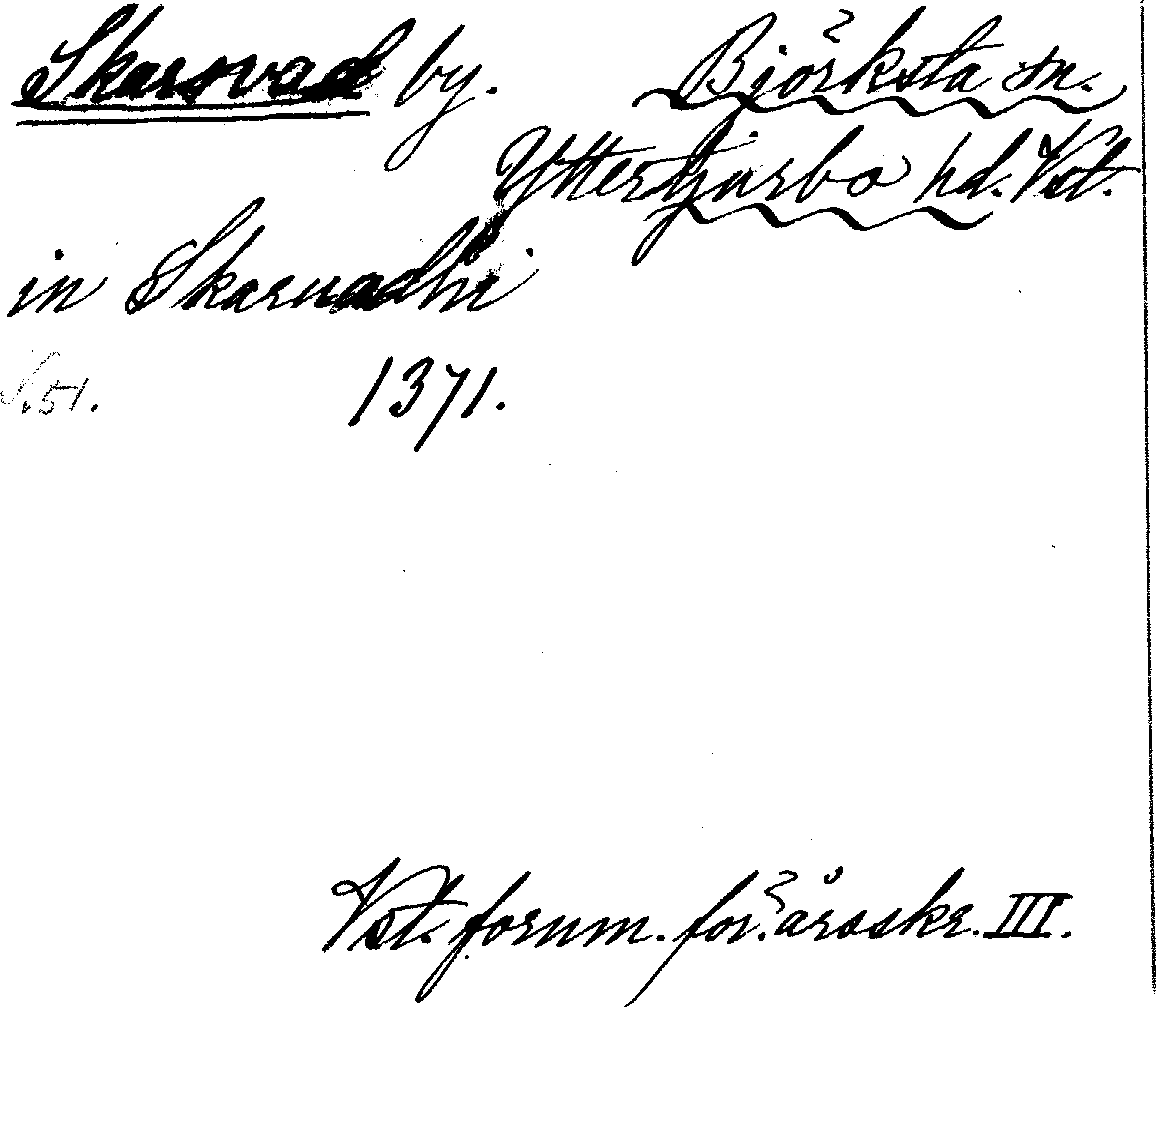 Skarsvad by. Björksta sn.
Yttertjurbo hd. Vstl.
in Skaruadhi
S. 51. 1371.
Vstl. fornm. för. årsskr. III.